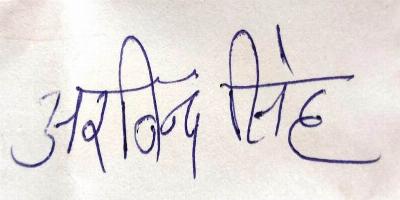 अरविन्द सिंह